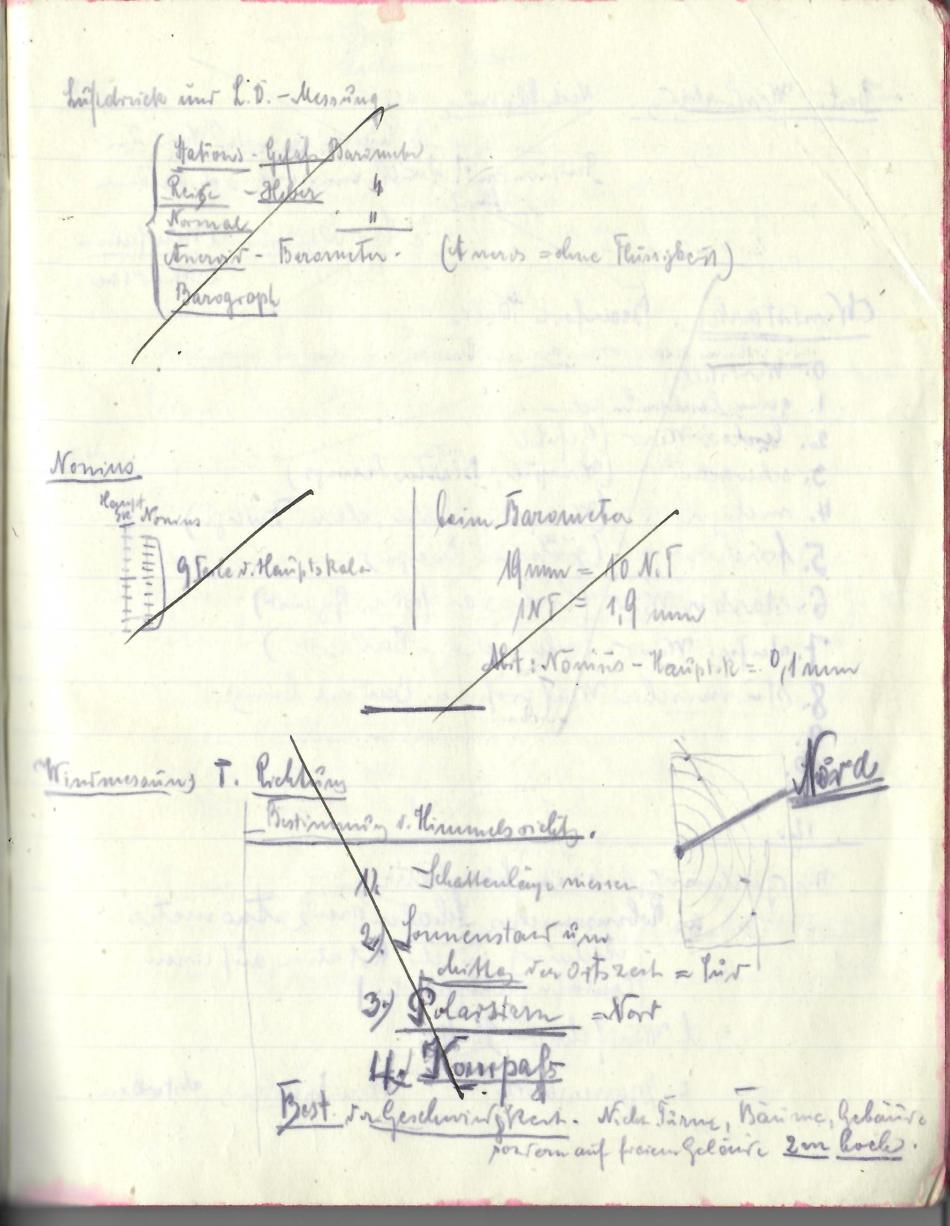 Luftdruck und L.D.-Messung
Stations - Gefäß Barometer
Reise - Heber "
Normal "
Aneroid - Barometer. (Aneros = ohne Flüssigkeit)
Barograph
Nonius
Haupt
Nonius
9 Teile d. Hauptskala
beim Barometer
19 mm = 10 N.T
1NT = 1,9 mm
Abst: Nonius - Hauptsk = 0,1 mm
Windmessung I. Richtung
Bestimmung d. Himmelsrichtg.
Nord
1). Schattenlänge messen
2). Sonnenstand um
Mittag der Ortszeit = Süd
3.) Polarstern = Nord
4.) Kompaß
Best. der Geschwindigkeit. Nicht Türme, Bäume, Gebäude
sondern auf freiem Gelände 2m hoch.